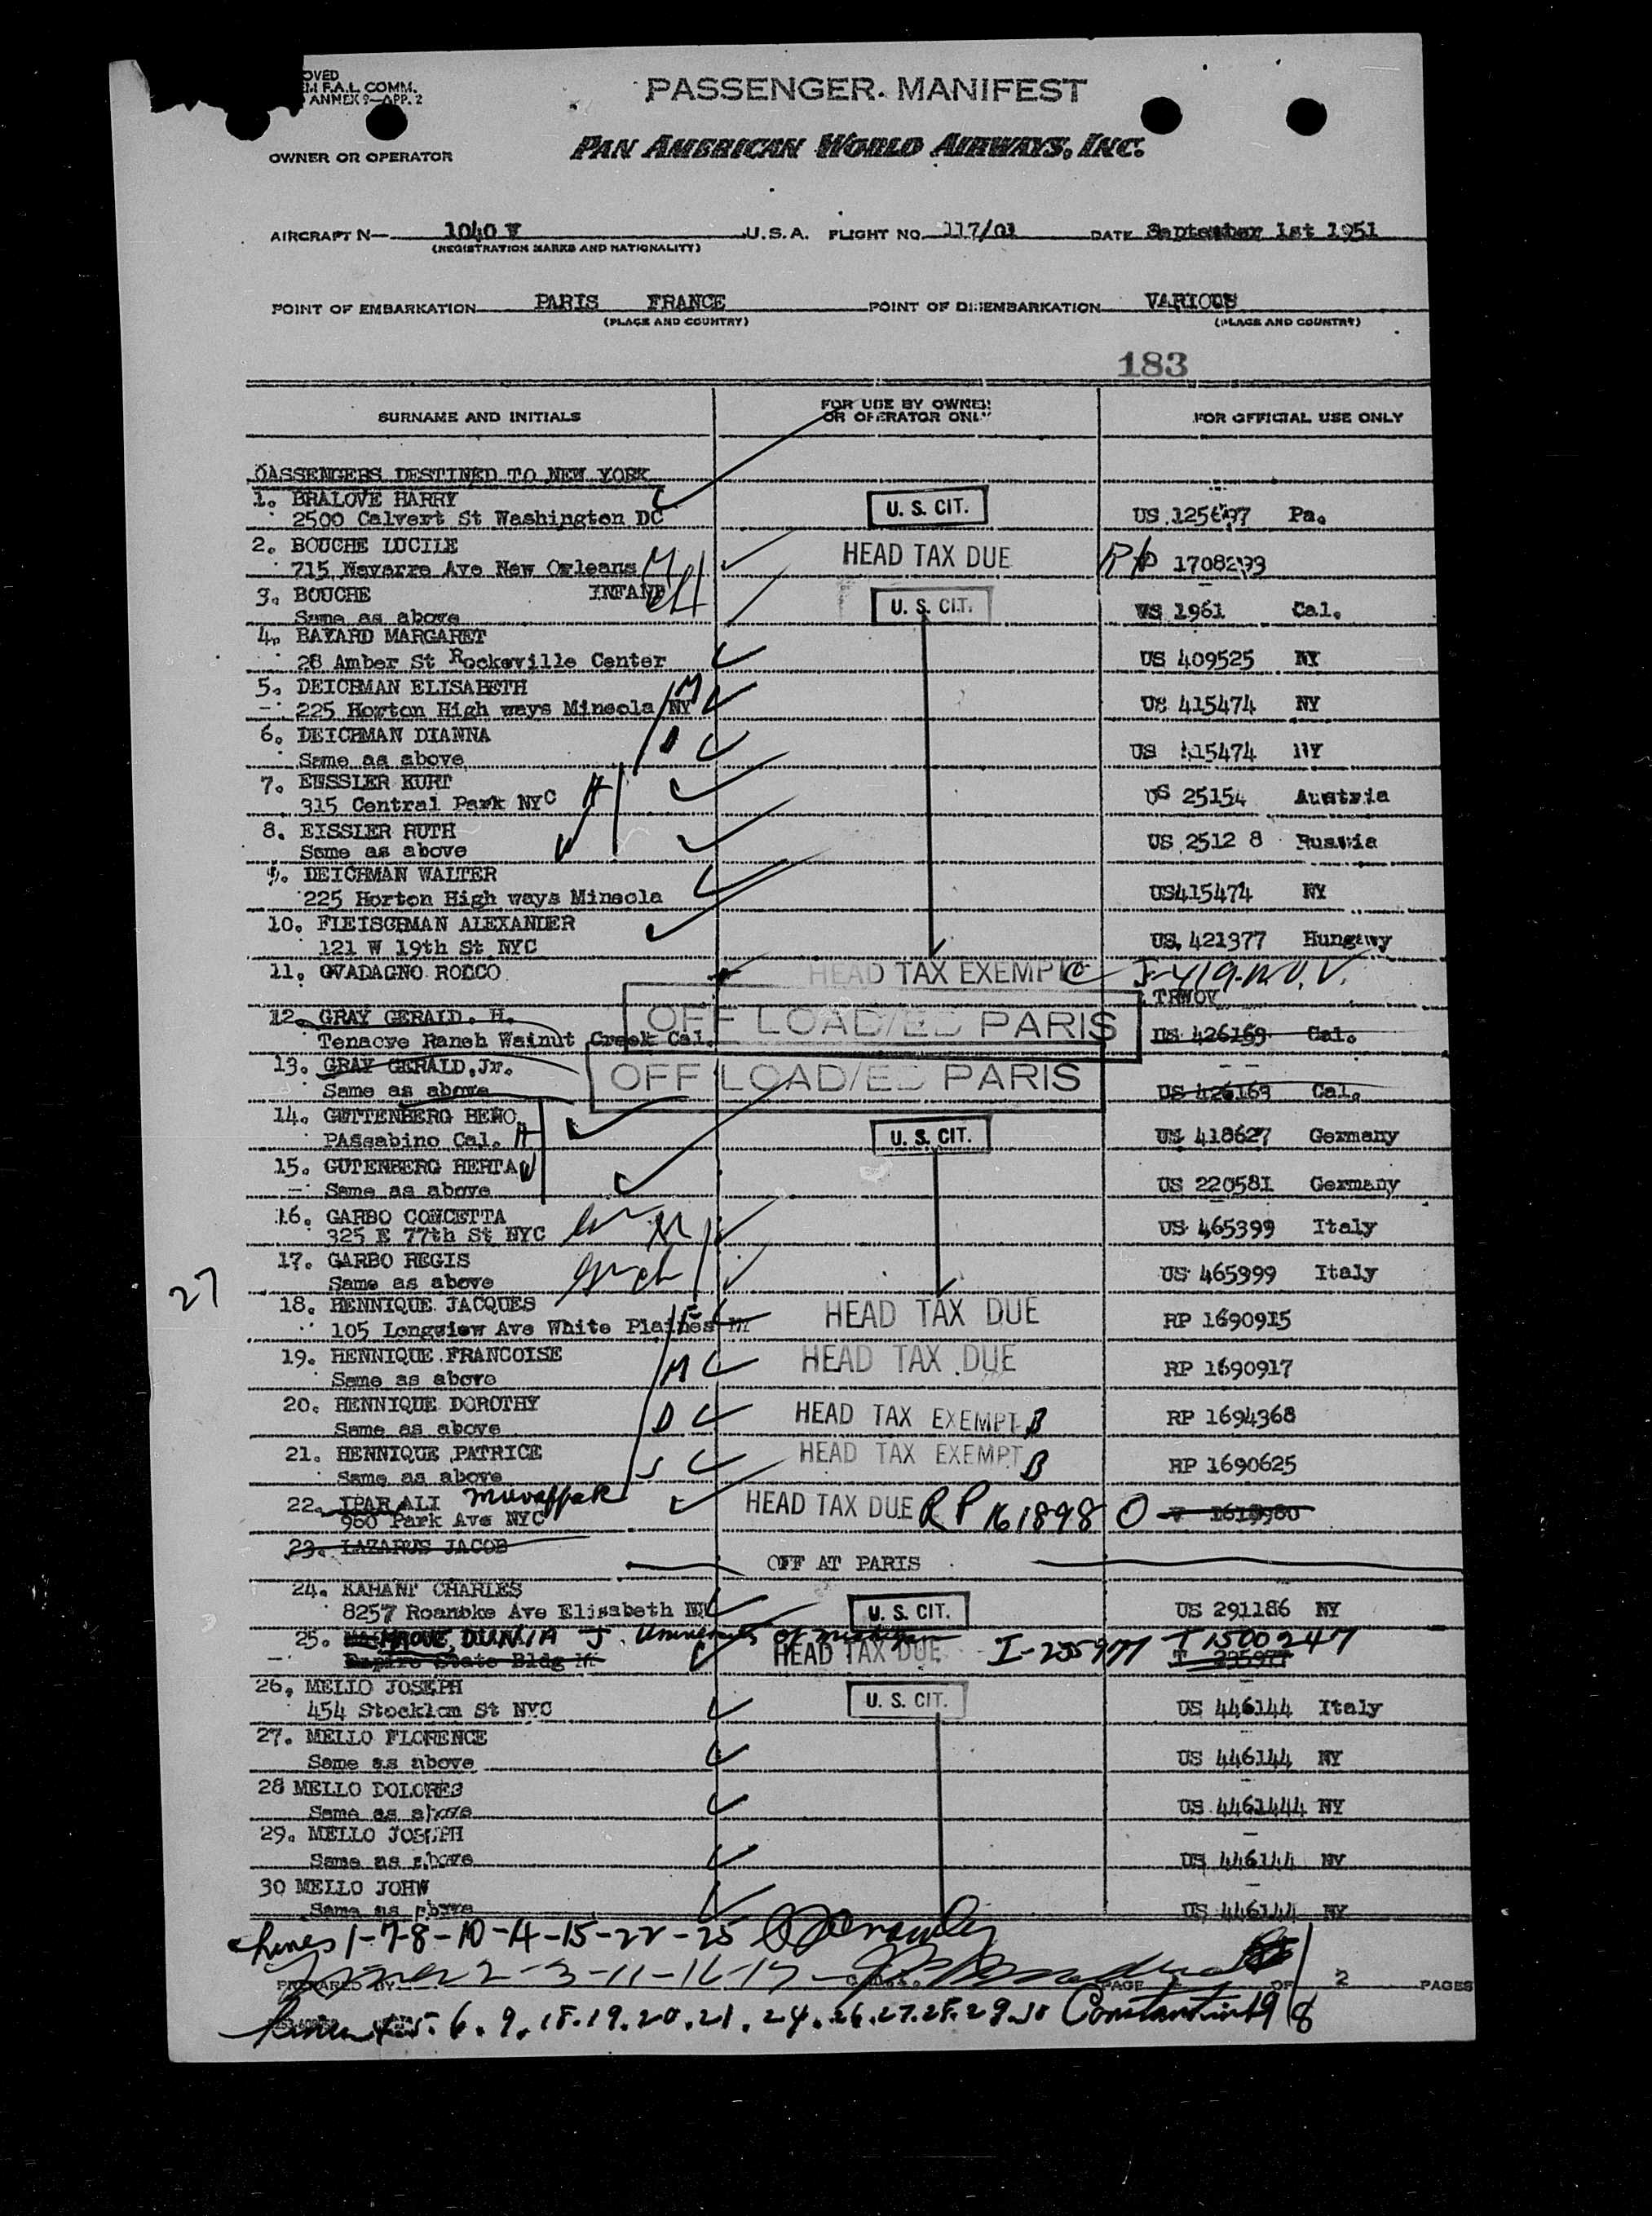 OVED
EM F.A.L. COMM.
ANNEX 9—APP. 2
PASSENGER MANIFEST
OWNER OR OPERATOR
PAN AMERICAN WORLD AIRWAYS, INC.
AIRCRAFT N— 1040 V U.S.A. FLIGHT NO. 117/01 DATE September 1st 1951
(REGISTRATION MARKS AND NATIONALITY)
POINT OF EMBARKATION PARIS FRANCE POINT OF DISEMBARKATION VARIOUS
(PLACE AND COUNTRY) (PLACE AND COUNTRY)
183
SURNAME AND INITIALS FOR USE BY OWNER OR OPERATOR ONLY FOR OFFICIAL USE ONLY
OASSENGERS DESTINED TO NEW YORK
1. BRALOVE HARRY
2500 Calvert St Washington DC U. S. CIT. US Pa.
2. BOUCHE LUCILE
715 Navarre Ave New Orleans M HEAD TAX DUE RP 1708293
3. BOUCHE INFANT
Same as above U. S. CIT. 1961 Cal.
4. BAYARD MARGARET
28 Amber St Rockeville Center US 409525 NY
5. DEICHMAN ELISABETH
225 Horton High ways Mineola NY M US 415474 NY
6. DEICHMAN DIANNA
Same as above D US 415474 NY
7. EISSLER KURT
315 Central Park NYC H US 25154 Austria
8. EISSLER RUTH
Same as above W US 2512 8 Russia
9. DEICHMAN WALTER
225 Horton High ways Mineola US415474 NY
10. FLEISCHMAN ALEXANDER
121 W 19th St NYC US. 421377 Hungary
11. GVADAGNO ROCCO HEAD TAX EXEMPT C
TRWOV
12. GRAY GERALD. H. OFF LOAD/ED PARIS
Tenacre Ranch Walnut Creek Cal. US 426169 Cal.
13. GRAY GERALD, Jr. OFF LOAD/ED PARIS
Same as above US 426169 Cal.
14. GUTTENBERG BENO
PASsabino Cal. H U. S. CIT. US 418627 Germany
15. GUTENBERG HERTA W
Same as above US 220581 Germany
16. GARBO CONCETTA
325 E 77th St NYC M US 465399 Italy
17. GARBO REGIS
Same as above ch US 465999 Italy
27
18. HENNIQUE JACQUES
105 Longview Ave White Plaines HEAD TAX DUE RP 1690915
19. HENNIQUE FRANCOISE
Same as above M HEAD TAX DUE RP 1690917
20. HENNIQUE DOROTHY
Same as above D HEAD TAX EXEMPT B RP 1694368
21. HENNIQUE PATRICE
Same as above S HEAD TAX EXEMPT B RP 1690625
22. IPAR ALI Muvaffak
960 Park Ave NYC HEAD TAX DUE RP 1618980
23. LAZARUS JACOB
OFF AT PARIS
24. KAHANT CHARLES
8257 Roanoke Ave Elisabeth U. S. CIT. US 291186 NY
25. J. University of
Empire State Bldg HEAD TAX DUE I-235977 T 1500247
26. MELLO JOSEPH
454 Stocklom St NYC U. S. CIT. US 446144 Italy
27. MELLO FLORENCE
Same as above US 446144 NY
28 MELLO DOLORES
Same as above US 4461444 NY
29. MELLO JOSEPH
Same as above US 446144 NY
30 MELLO JOHN
Same as above US 446144 NY
Lines 1-7-8-10-14-15-22-25
Lines 2-3-11-16-17-
PREPARED BY PAGE OF 2 PAGES
Lines 4.5.6.9.18.19.20.21.24.26.27.28.29.30 Constantin